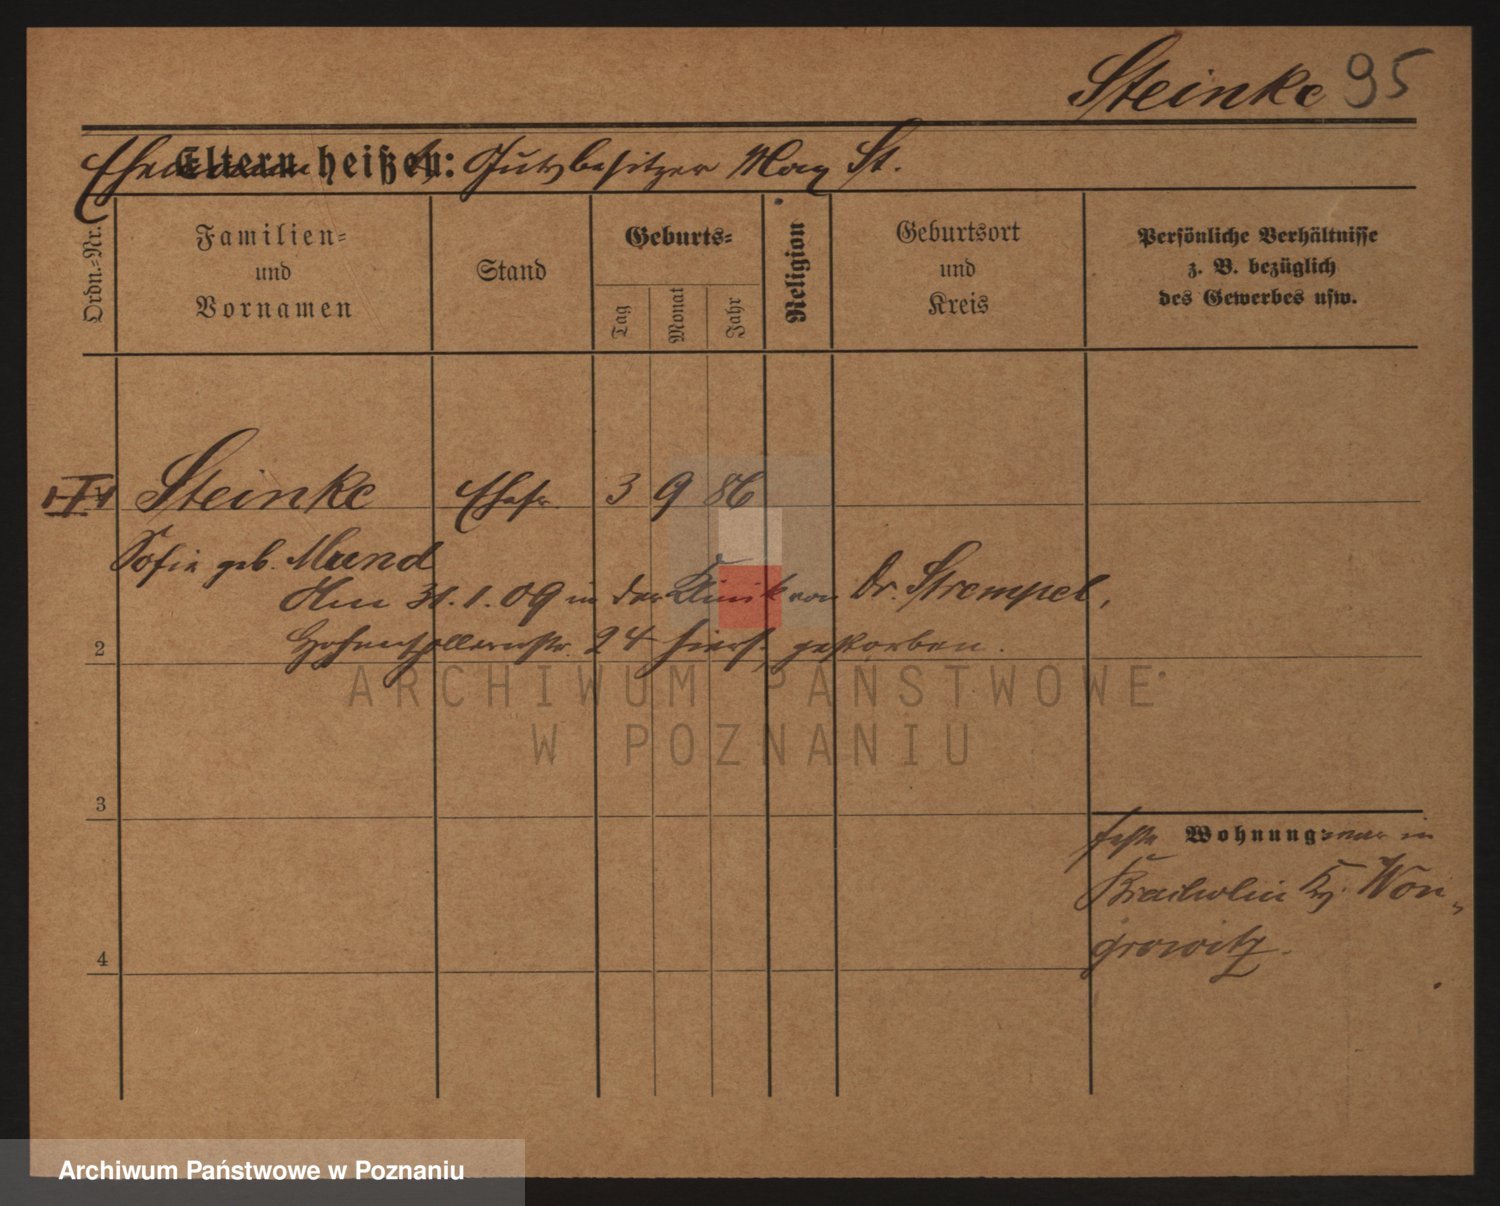 Steinke 95
Ehemann Eltern heißen: Gutsbesitzer Max St.
Ordn.-Nr.
Familien-
und
Vornamen
Stand
Geburts-
Tag
Monat
Jahr
Religion
Geburtsort
und
Kreis
Persönliche Verhältnisse
z. B. bezüglich
des Gewerbes usw.
Steinke Ehefr. 3 9 86
Sofie geb. Mund
Am 31.1.09 in der Klinik von Dr. Strempel,
2 Hohenzollernstr. 24 hiers., gestorben.
ARCHIWUM PAŃSTWOWE
W POZNANIU
3
feste Wohnung: war in
Kr. Won-
4 growitz.
Archiwum Państwowe w Poznaniu